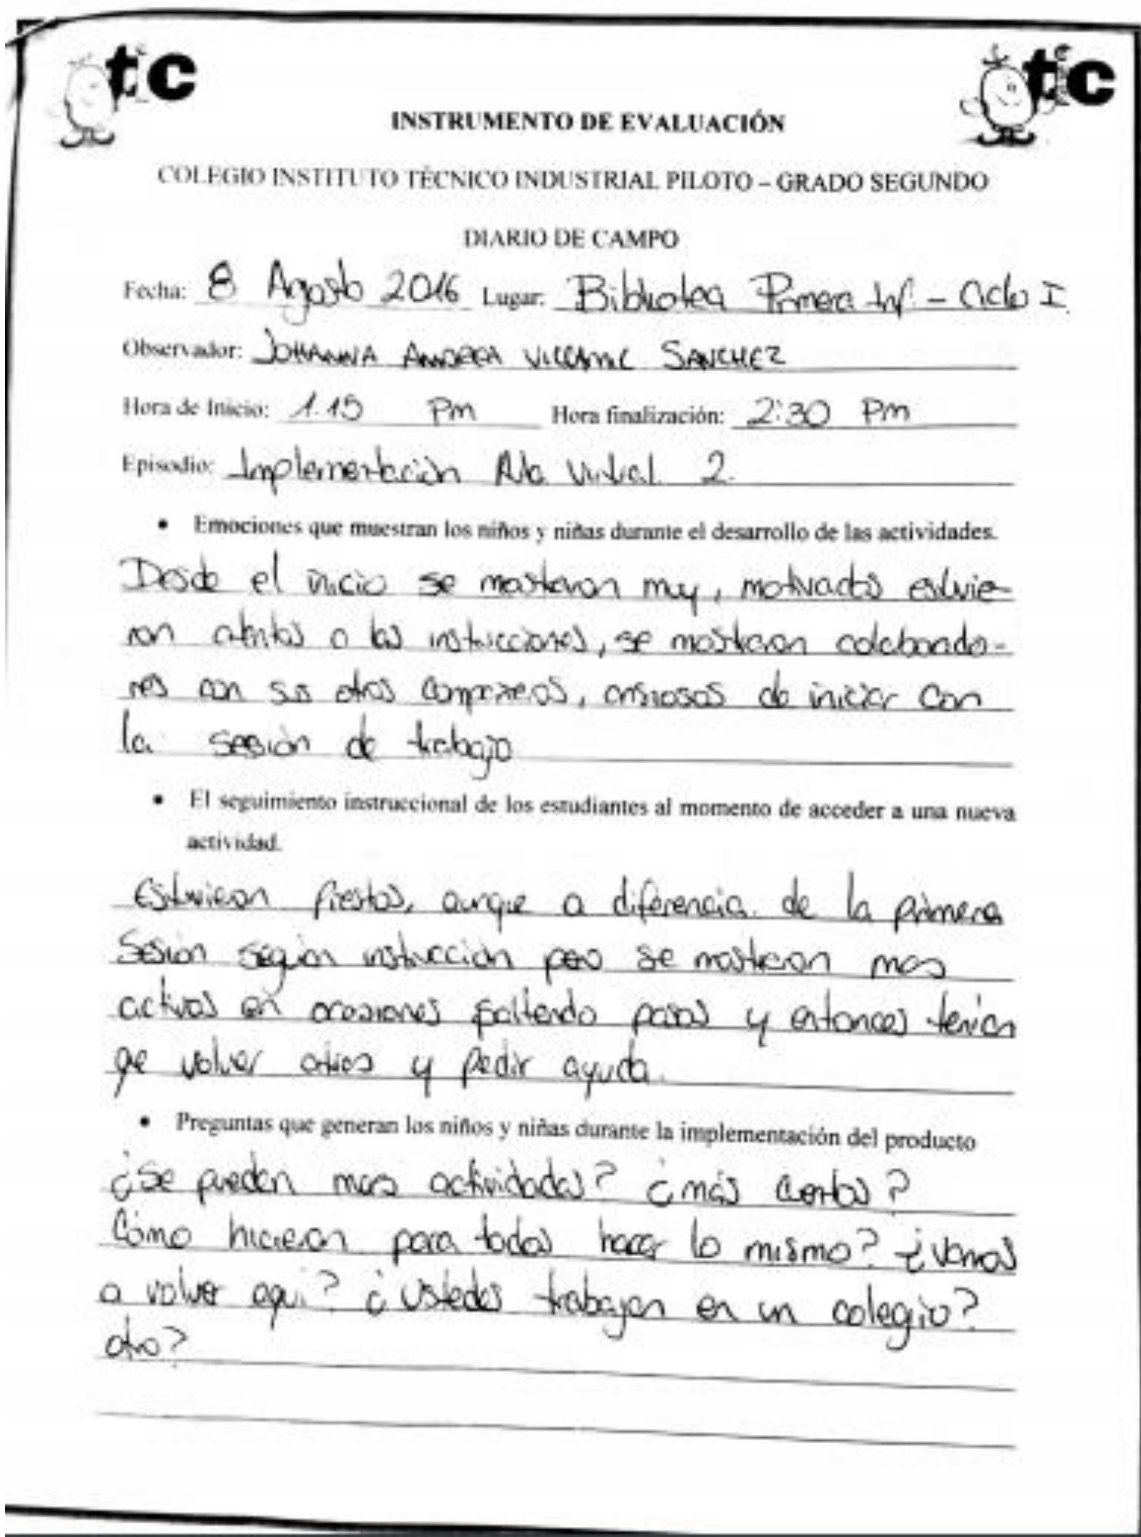 tic
tic
INSTRUMENTO DE EVALUACIÓN
COLEGIO INSTITUTO TÉCNICO INDUSTRIAL PILOTO – GRADO SEGUNDO
DIARIO DE CAMPO
Fecha: 8 Agosto 2016 Lugar: Biblioteca Primera Inf – Ciclo I
Observador: JOHANNA ANDREA VILLAMIL SANCHEZ
Hora de Inicio: 1:15 Pm Hora finalización: 2:30 Pm
Episodio: Implementación Aula Virtual 2.
• Emociones que muestran los niños y niñas durante el desarrollo de las actividades.
Desde el inicio se mostraron muy, motivados estuvie-
ron atentos a las instrucciones, se mostraron colaborado-
res con sus otros compañeros, ansiosos de iniciar con
la sesión de trabajo
• El seguimiento instruccional de los estudiantes al momento de acceder a una nueva
actividad.
Estuvieron prestos, aunque a diferencia de la primera
Sesión seguian instrucción pero se mostraron mas
activos en ocasiones saltando pasos y entonces tenian
qe volver atras y pedir ayuda.
• Preguntas que generan los niños y niñas durante la implementación del producto
¿Se pueden mas actividades? ¿más cuentos?
Cómo hicieron para todos hacer lo mismo? ¿vamos
a volver aqui? ¿Ustedes trabajan en un colegio?
otro?